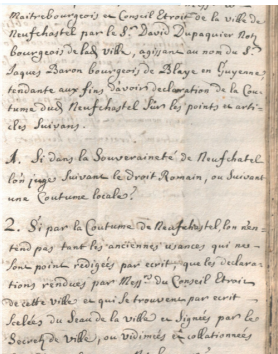 Maitrebourgeois et Conseil Etroit de la ville de
Neufchastel par le Sr. David Dupaquier Not.
bourgeois de lad. ville, agissant au nom du Sr.
Jaques Baron bourgeois de Blaye en Guyenne,
tendante aux fins davoir declaration de la Cou-
tume dud. Neufchastel sur les points et arti-
cles suivans.
1. Si dans la Souveraineté de Neufchatel
lon juge suivant le droit Romain, ou suivant
une Coutume locale?
2. Si par la Coutume de Neufchastel, lon nen-
tend pas tant les anciennes usances qui ne
sont point redigées par ecrit, que les declara-
tions rendues par Messrs. du Conseil Etroit
de cette ville et qui se trouvent par ecrit
Scelées du Seau de la ville et Signées par le
Secret. de ville, ou vidimées et collationnées